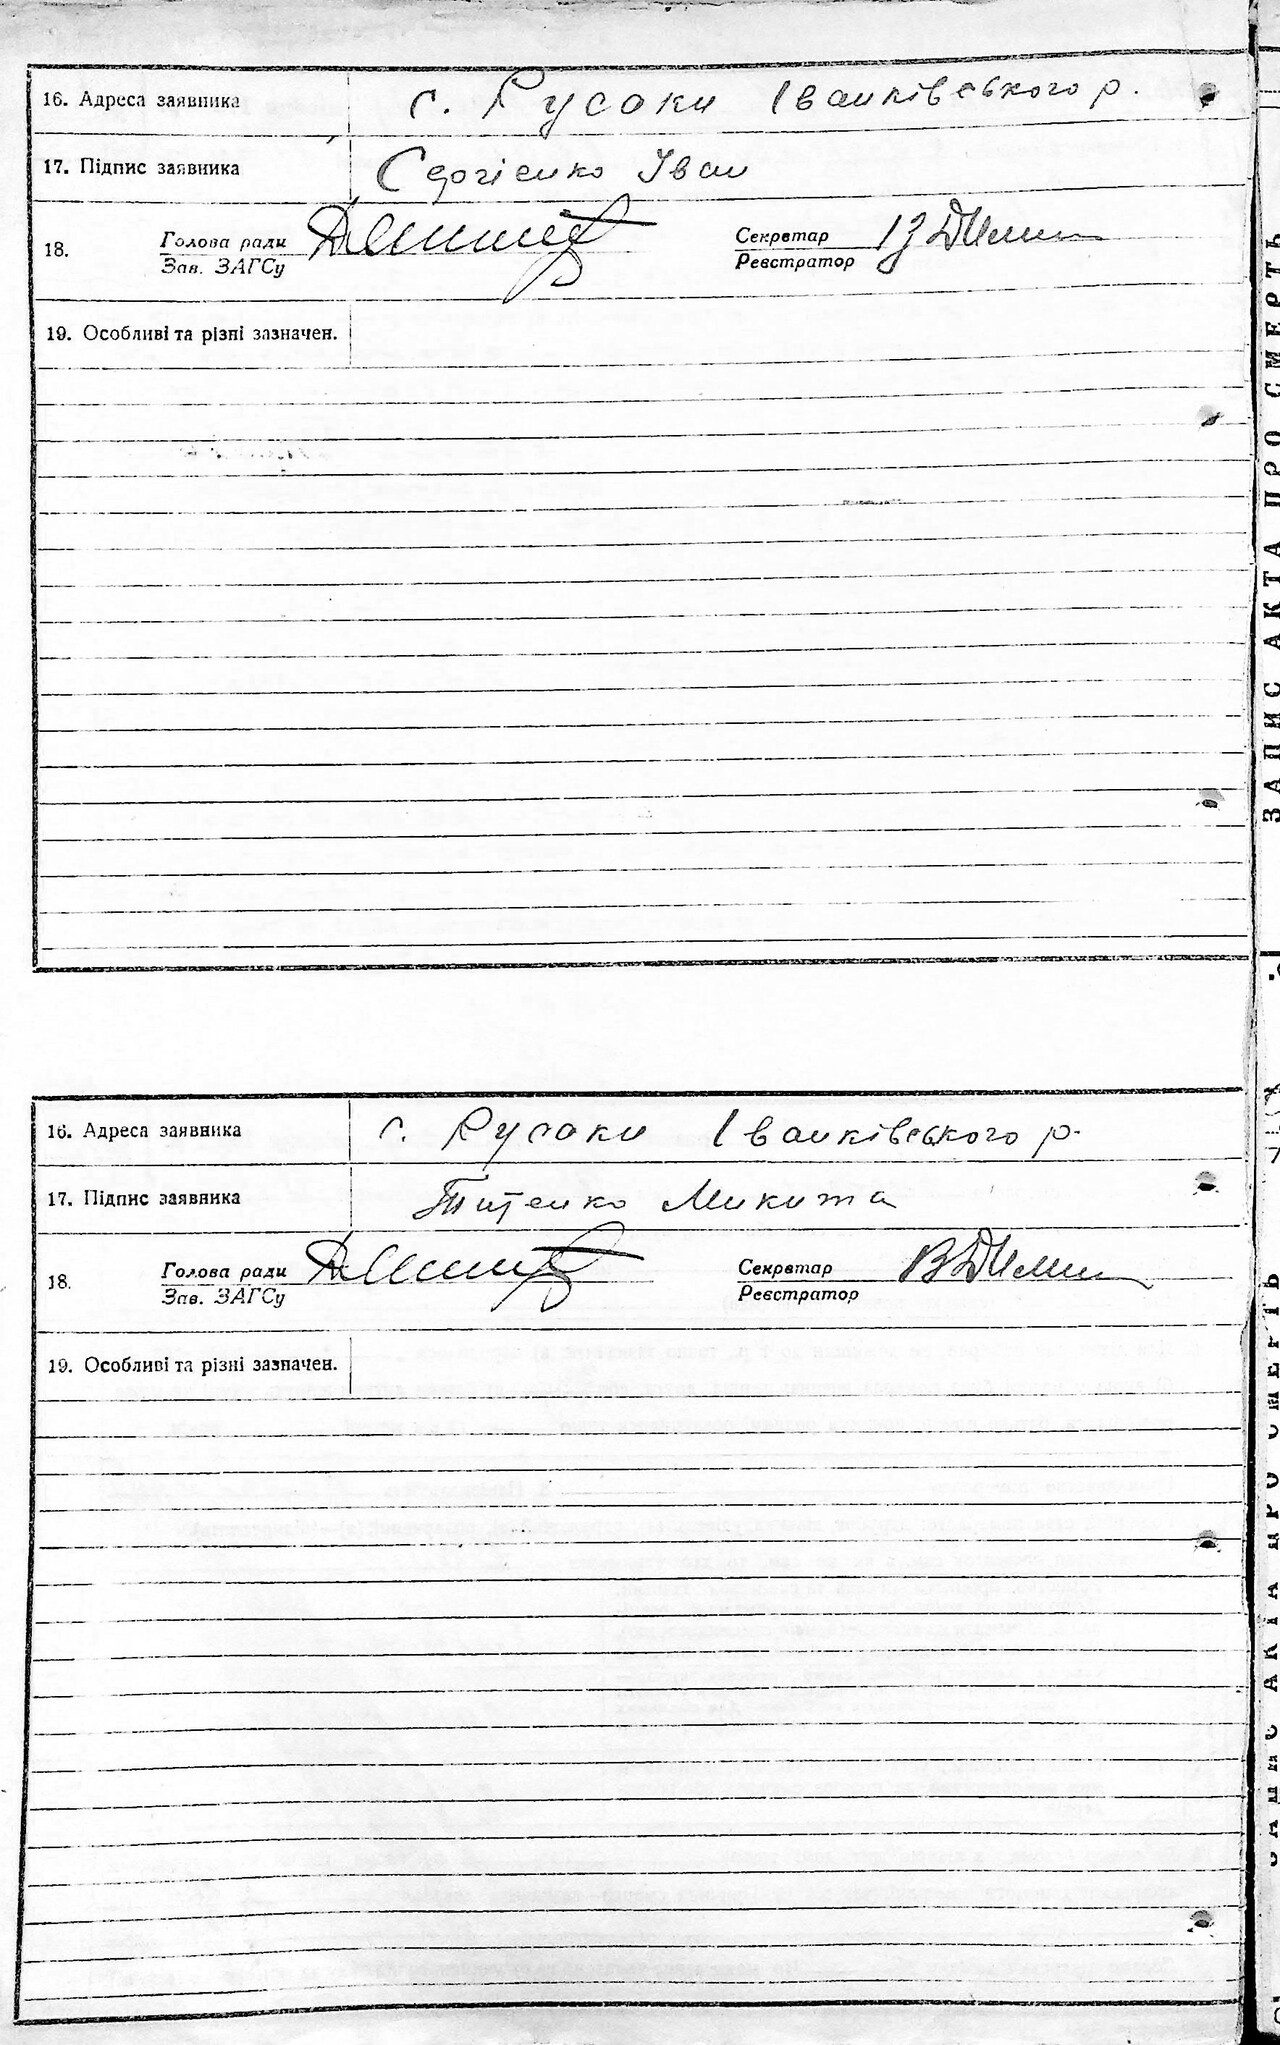 16. Адреса заявника с. Русаки Іванківського р.
17. Підпис заявника Сергієнко Іван
18. Голова ради Секретар
Зав. ЗАГСу Реєстратор
19. Особливі та різні зазначен.
16. Адреса заявника с. Русаки Іванківського р.
17. Підпис заявника Титенко Микита
18. Голова ради Секретар
Зав. ЗАГСу Реєстратор
19. Особливі та різні зазначен.
ЗАПИС АКТА ПРО СМЕРТЬ
ЗАПИС АКТА ПРО СМЕРТЬ